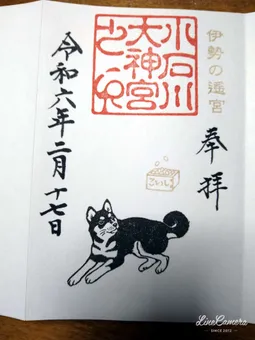 伊勢の遥宮
奉拝
小石川
大神宮
令和六年二月十七日
こいし
LineCamera
SINCE 2012